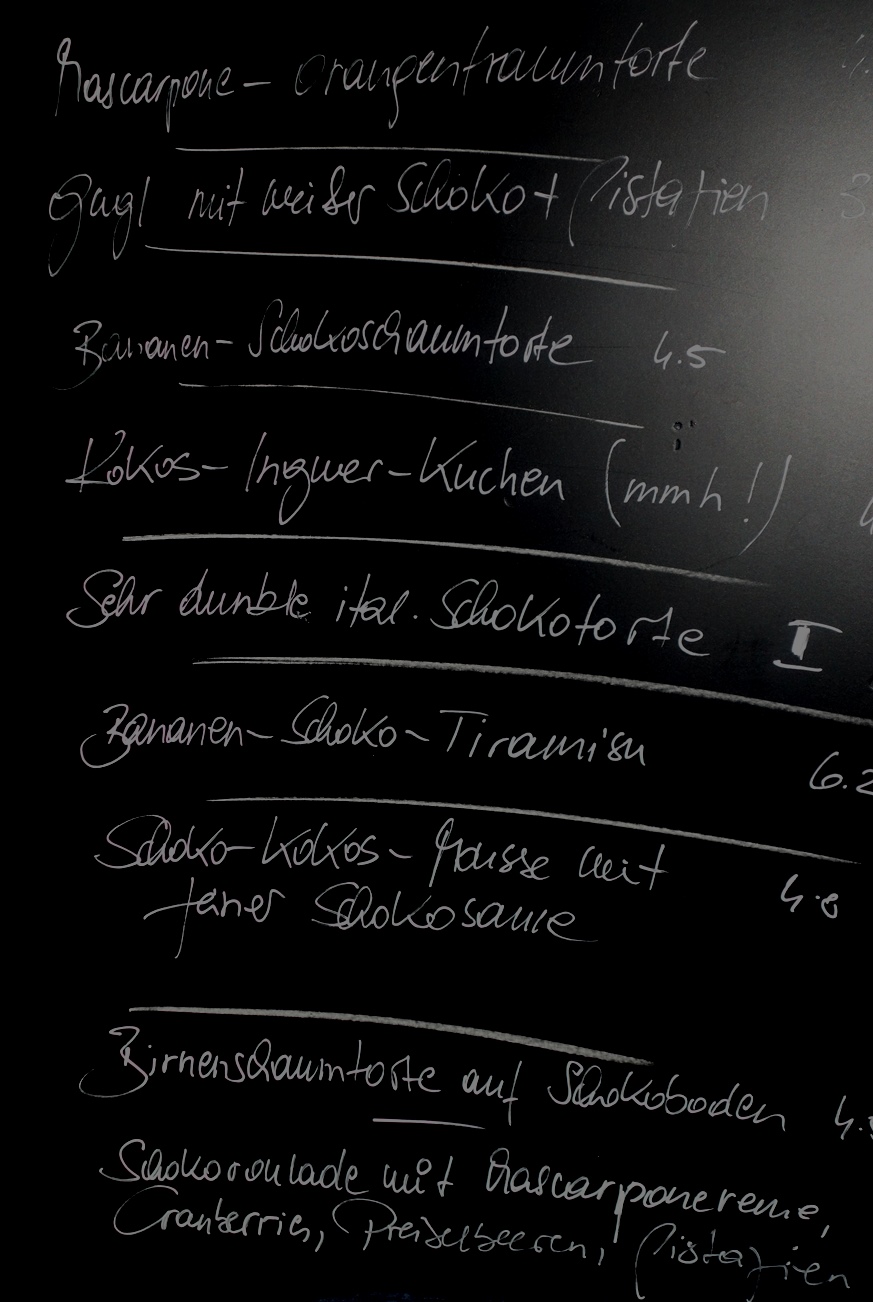 Mascarpone- Orangentraumtorte 4.
Gugl mit weißer Schoko + Pistazien 3
Bananen-Schokoschaumtorte 4.5
Kokos-Ingwer-Kuchen (mmh!)
Sehr dunkle ital. Schokotorte I
Bananen-Schoko-Tiramisu 6.2
Schoko-Kokos-Mousse mit 4.8
feiner Schokosauce
Birnenschaumtorte auf Schokoboden 4.5
Schokoroulade mit Mascarponecreme,
Cranberries, Preiselbeeren, Pistazien